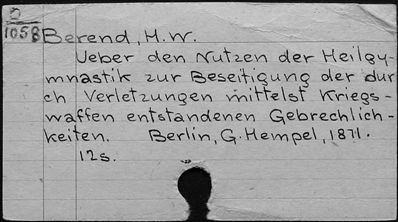 O
1058 Berend, H.W.
Ueber den Nutzen der Heilgy-
mnastik zur Beseitigung der dur
ch Verletzungen mittelst Kriegs-
waffen entstandenen Gebrechlich-
keiten. Berlin, G. Hempel, 1871.
12s.